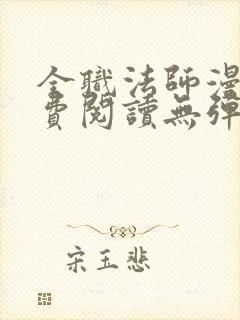 全職法師漫
費閱讀無彈
宋玉悲